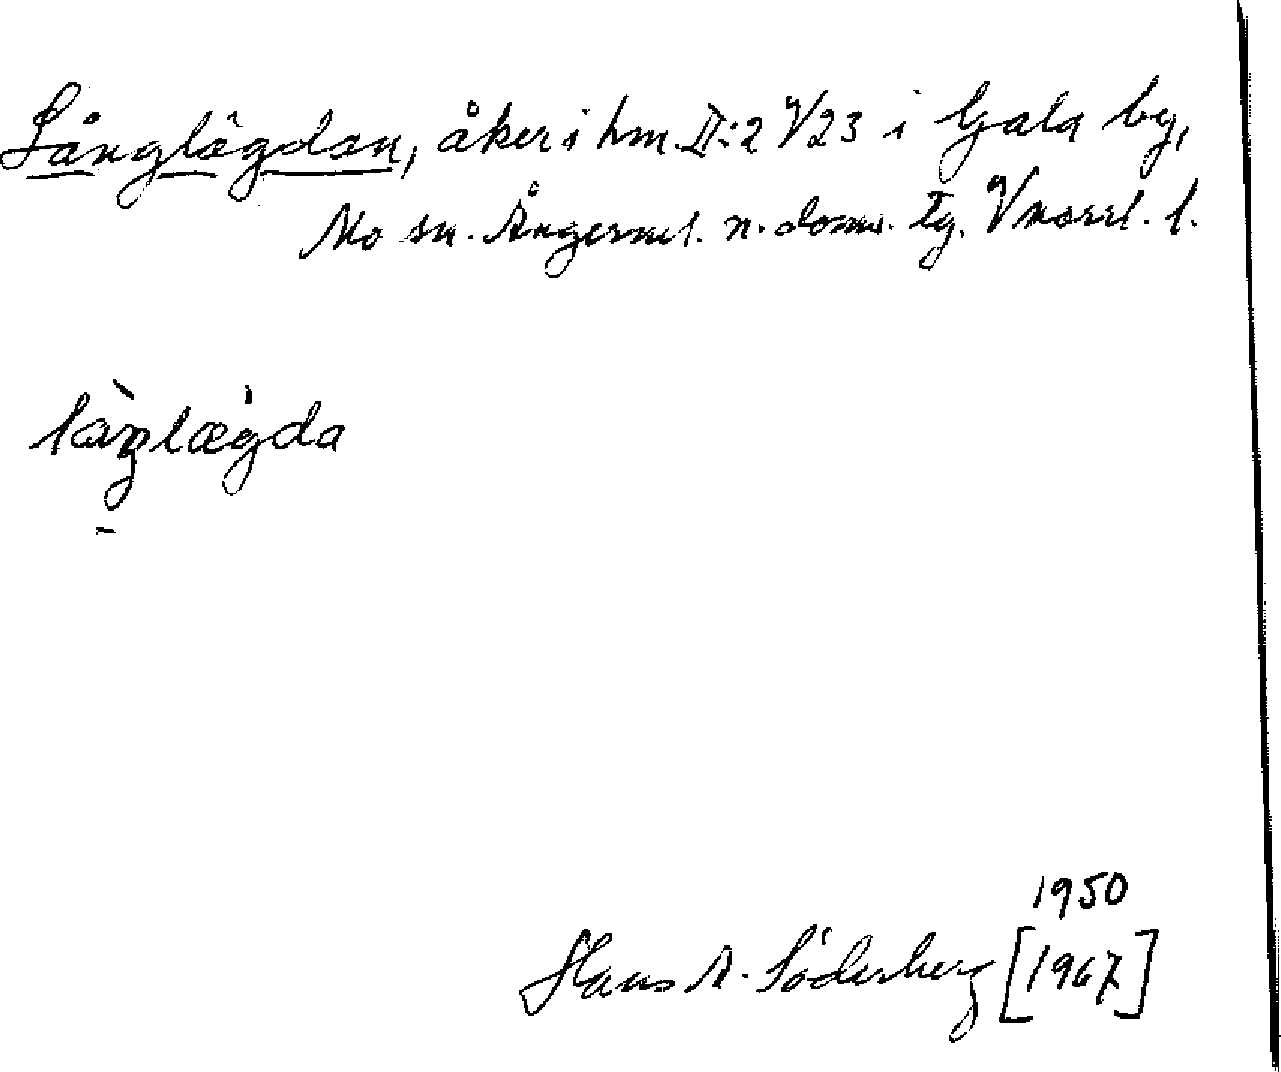 Långlägdan, åker i hm. II:2 V23 i Gala by,
Mo sn. Ångerml. n. doms. tg. Vnorrl. l.
làŋlægda
1950
Hans A. Söderberg [1967]